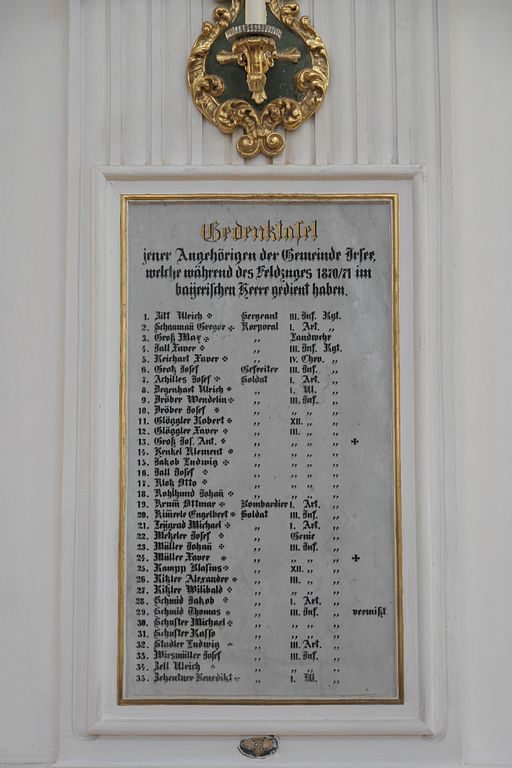 Gedenktafel
jener Angehörigen der Gemeinde Irsee,
welche während des Feldzuges 1870/71 im
bayerischen Heere gedient haben.
1. Ulrich Sergeant III. Inf. Rgt.
2. Schaumañ Gregor Korporal I. Art. „
3. Groß Max „ Landwehr
4. Jall Xaver „ III. Inf. Rgt.
5. Reichart Xaver „ IV. Chev. „
6. Groß Josef Gefreiter III. Inf. „
7. Achilles Josef Soldat I. Art. „
8. Degenhart Ulrich „ I. Ul. „
9. Dröber Wendelin „ III. Inf. „
10. Dröber Josef „ „ „ „
11. Glöggler Robert „ XII. „ „
12. Glöggler Xaver „ III. „ „
13. Groß Jos. Ant. „ „ „ „ ✠
14. Henkel Klement „ „ „ „
15. Jakob Ludwig „ „ „ „
16. Jall Josef „ „ „ „
17. Klotz Otto „ „ „ „
18. Kohlhund Johañ „ „ „ „
19. Krum̄ Ottmar Bombardier I. Art. „
20. Kim̄erle Engelbert Soldat III. Inf. „
21. Michael „ I. Art. „
22. Metzler Josef „ Genie „
23. Müller Johañ „ III. Inf. „
24. Müller Xaver „ „ „ „ ✠
25. Rampp Blasius „ XII. „ „
26. Ritzler Alexander „ III. „ „
27. Ritzler Wilibald „ „ „ „
28. Schmid Jakob „ I. Art. „
29. Schmid Thomas „ III. Inf. „ vermißt
30. Schuster Michael „ „ „ „
31. Schuster Kasso „ „ „ „
32. Stadler Ludwig „ III. Art. „
33. Wiesmüller Josef „ III. Inf. „
34. Zell Ulrich „ „ „ „
35. Zehentner Benedikt „ I. Ul. „